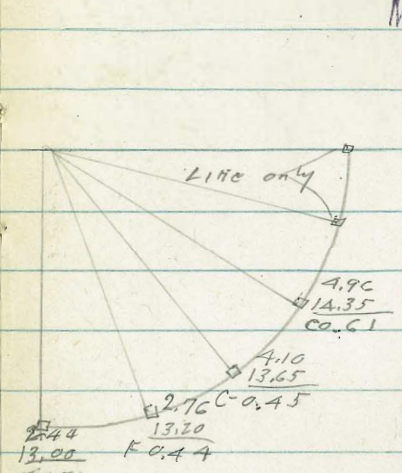 Line only
4.96
14.35
C0.61
4.10
13.65
C-0.45
2.76
13.20
F 0.44
2.44
13.00